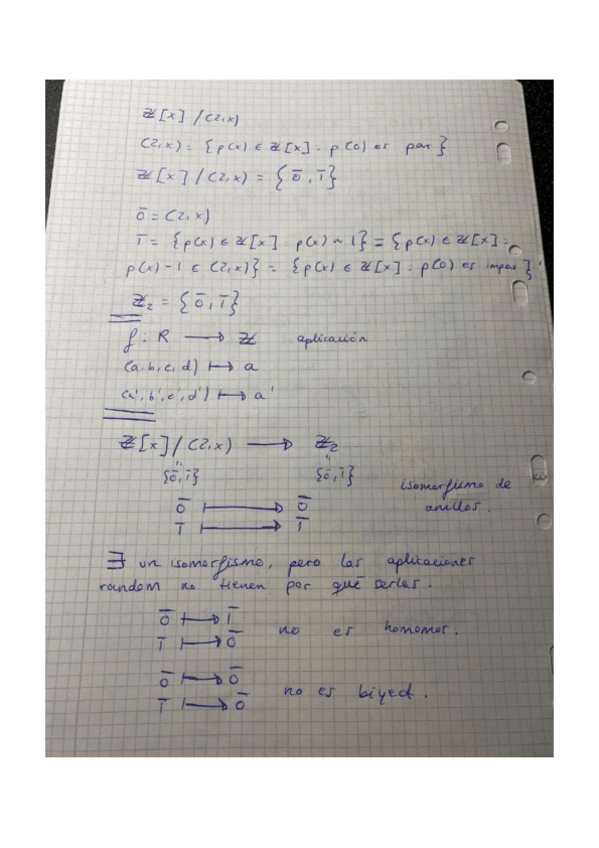 ℤ[x]/(2,x)
(2,x) = {p(x) ∈ ℤ[x] : p(0) es par}
ℤ[x]/(2,x) = {0̄, 1̄}
0̄ = (2,x)
1̄ = {p(x) ∈ ℤ[x] : p(x) ~ 1} = {p(x) ∈ ℤ[x] :
p(x)-1 ∈ (2,x)} = {p(x) ∈ ℤ[x] : p(0) es impar}
ℤ₂ = {0̄, 1̄}
f : R ⟶ ℤ aplicación
(a,b,c,d) ⟼ a
(a',b',c',d') ⟼ a'
ℤ[x]/(2,x) ⟶ ℤ₂
" "
{0̄,1̄} {0̄,1̄} isomorfismo de
0̄ ⟼ 0̄ anillos.
1̄ ⟼ 1̄
∃ un isomorfismo, pero las aplicaciones
random no tienen por qué serlos.
0̄ ⟼ 1̄
1̄ ⟼ 0̄ no es homomor.
0̄ ⟼ 0̄
1̄ ⟼ 0̄ no es biyect.